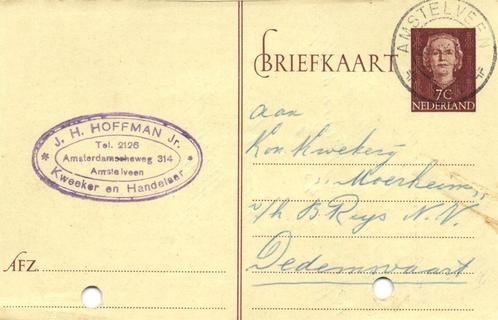 AMSTELVEEN
BRIEFKAART
7C
NEDERLAND
J. H. HOFFMAN Jr.
Tel. 2126
Amsterdamscheweg 314
Amstelveen
* Kweeker en Handelaar *
AFZ.
Aan
Kon. Kwekerij
Moerheim
v/h B. Ruys N.V.
Dedemsvaart